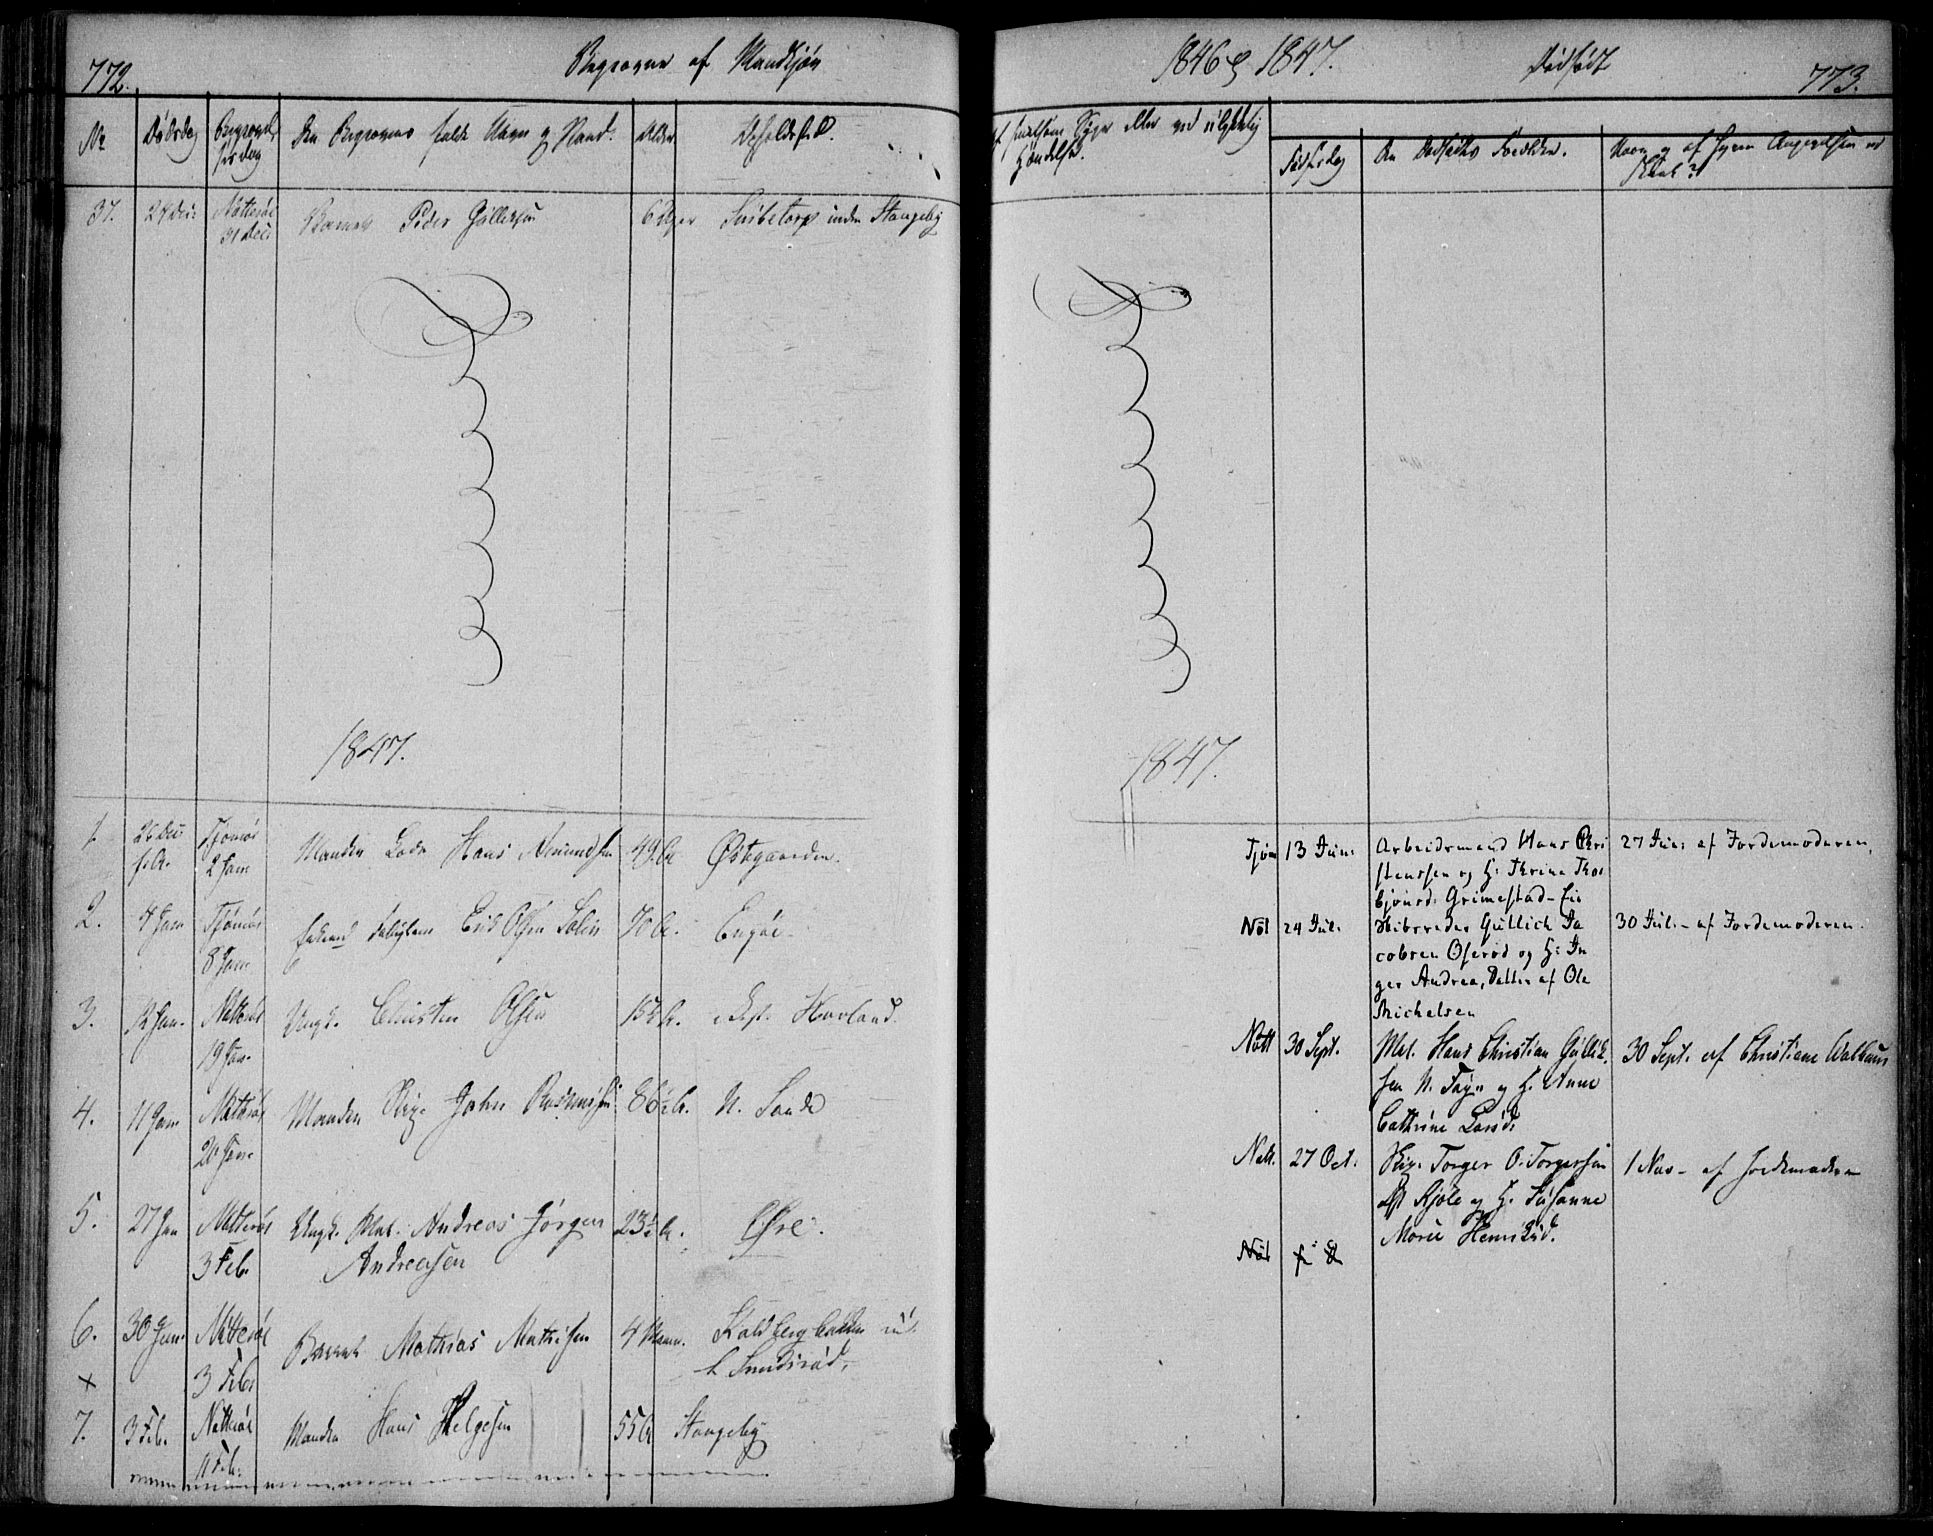 772.
Begravne af Mandkjøn
No
Dødsdag
Begravel-
ses dag
Den Begravnes fulde Navn og Stand.
Alder
Opholdssted.
37.
24 Dec:
Nøtterøe
31 Dec:
Barnet Peder Gullichsen
6 Uger
under Stangeby
1847.
1.
26 Dec
f. A.
Tjømøe
2 Jan
Manden Hans
49 Ar
Østgaarden.
2.
4 Jan
Tjømøe
8 Jan
Erik Olsen
70 Ar.
Engøe.
3.
12 Jan.
Nøtterøe
19 Jan.
Ungk. Christen Olsen
15½ Ar.
Havland.
4.
11 Jan
Nøtterøe
20 Jan.
Manden John Rasmussen
86½ Ar.
N. Sande
5.
27 Jan
Nøtterøe
3 Feb.
Ungk. Mat. Andreas Jørgen
Andreasen
23½ Ar.
Øre.
6.
30 Jan.
Nøtterøe
3 Febr
Barnet Mathias Mathisen
4 Maan.
×
7.
3 Feb.
Nøtterøe
11 Feb.
Manden Hans Helgesen
55 Ar
Stangeby
1846 & 1847.
Dødfødt
773.
Af smitsom Syge eller ved ulykkelig
Hændelse.
Fødselsdag
Den Dødfødtes Forældre.
Naar og af hvem Anmeldelsen er
skeet?
1847.
Tjøm
13 Juni
Arbeidsmand Hans Chri
stenssen og H: Thrine Thor
bjørnsd: Grimestad-Eie
27 Juni af Jordemoderen.
Nøt
24 Jul.
Skibsreder Gullich Ja
cobsen Oserød og H: In
ger Andrea, Datter af Ole
Michelsen
30 Jul. - af Jordemoderen.
Nøtt
30 Sept.
Mat. Hans Christian Gullik
sen N. og H. Anne
Cathrine Larsd.
30 Sept. af Christiane
Nøtt.
27 Oct.
Torger O. Torgersen
Kjøle og H. Susanne
Marie Henriksd.
1 Nov - af Jordemoderen
Nøt